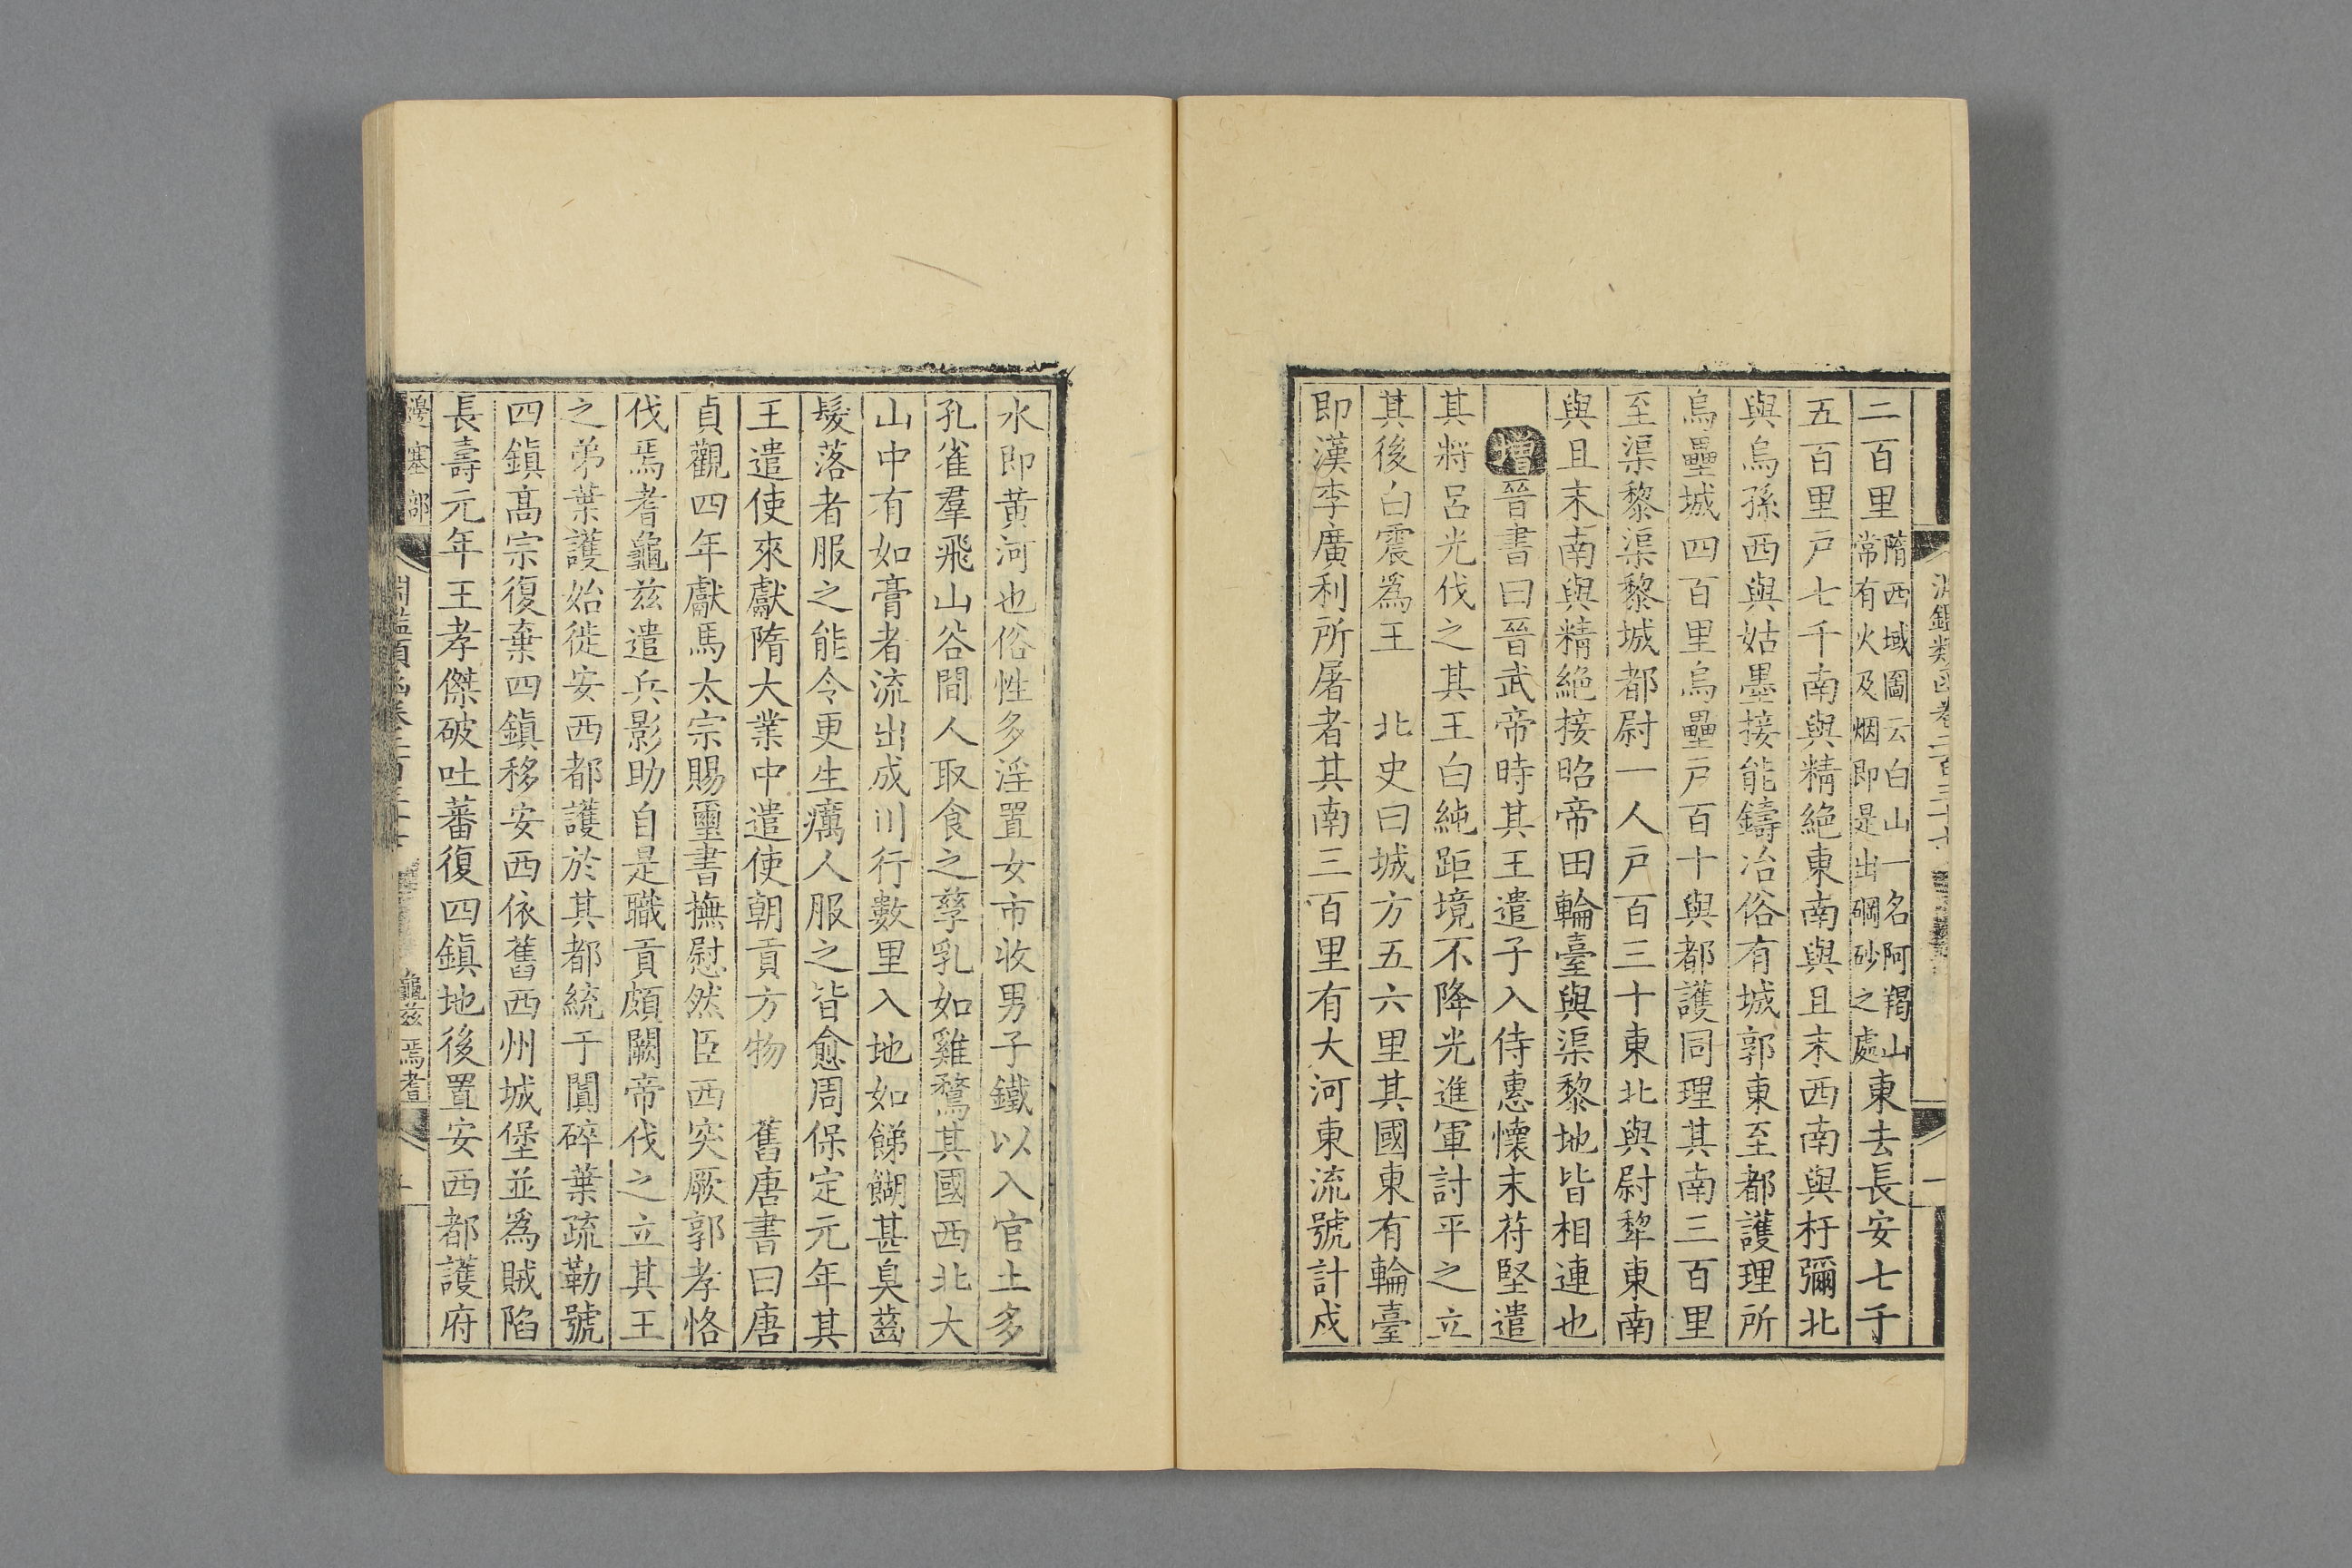 二百里隋西域圖云白山一名阿羯山常有火及烟即是出硇砂之處東去長安七千
五百里戸七千南與精絶東南與且末西南與杅彌北
與烏孫西與姑墨接能鑄冶俗有城郭東至都護理所
烏壘城四百里烏壘戸百十與都護同理其南三百里
至渠黎渠黎城都尉一人戸百三十東北與尉犂東南
與且末南與精絶接昭帝田輪臺與渠黎地皆相連也
增晉書曰晉武帝時其王遣子入侍惠懷末苻堅遣
其將呂光伐之其王白純距境不降光進軍討平之立
其後白震爲王　北史曰城方五六里其國東有輪臺
即漢李廣利所屠者其南三百里有大河東流號計戍
水即黄河也俗性多淫置女市收男子鐵以入官土多
孔雀羣飛山谷間人取食之孳乳如雞鶩其國西北大
山中有如膏者流出成川行數里入地如餳餬甚臭齒
髮落者服之能令更生癘人服之皆愈周保定元年其
王遣使來獻隋大業中遣使朝貢方物　舊唐書曰唐
貞觀四年獻馬太宗賜璽書撫慰然臣西突厥郭孝恪
伐焉耆龜兹遣兵影助自是職貢頗闕帝伐之立其王
之弟葉護始徙安西都護於其都統于闐碎葉疏勒號
四鎮高宗復棄四鎮移安西依舊西州城堡並爲賊陷
長壽元年王孝傑破吐蕃復四鎮地後置安西都護府
邊塞部
龜兹　焉耆